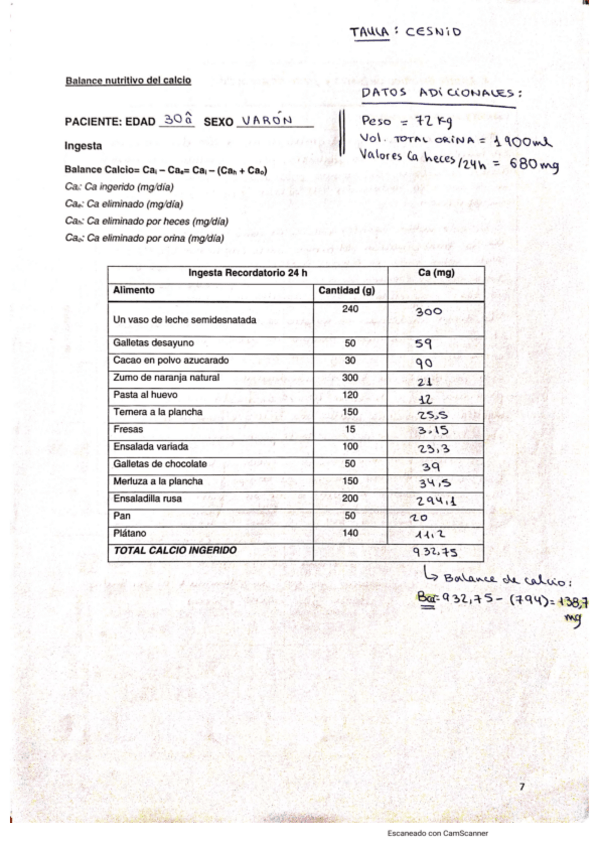 TAULA: CESNID
Balance nutritivo del calcio
DATOS ADICIONALES:
PACIENTE: EDAD 30â SEXO VARÓN
Peso = 72 Kg
Vol. TOTAL ORINA = 1900ml
Ingesta
Valores Ca heces/24h = 680mg
Balance Calcio= Caᵢ – Caₑ= Caᵢ – (Caₕ + Caₒ)
Caᵢ: Ca ingerido (mg/día)
Caₑ: Ca eliminado (mg/día)
Caₕ: Ca eliminado por heces (mg/día)
Caₒ: Ca eliminado por orina (mg/día)
Ingesta Recordatorio 24 h Ca (mg)
Alimento Cantidad (g)
Un vaso de leche semidesnatada 240 300
Galletas desayuno 50 59
Cacao en polvo azucarado 30 90
Zumo de naranja natural 300 21
Pasta al huevo 120 12
Ternera a la plancha 150 25,5
Fresas 15 3,15
Ensalada variada 100 23,3
Galletas de chocolate 50 39
Merluza a la plancha 150 34,5
Ensaladilla rusa 200 294,1
Pan 50 20
Plátano 140 11,2
TOTAL CALCIO INGERIDO 932,75
↳ Balance de calcio:
= 932,75 - (794) = 138,7
mg
7
Escaneado con CamScanner